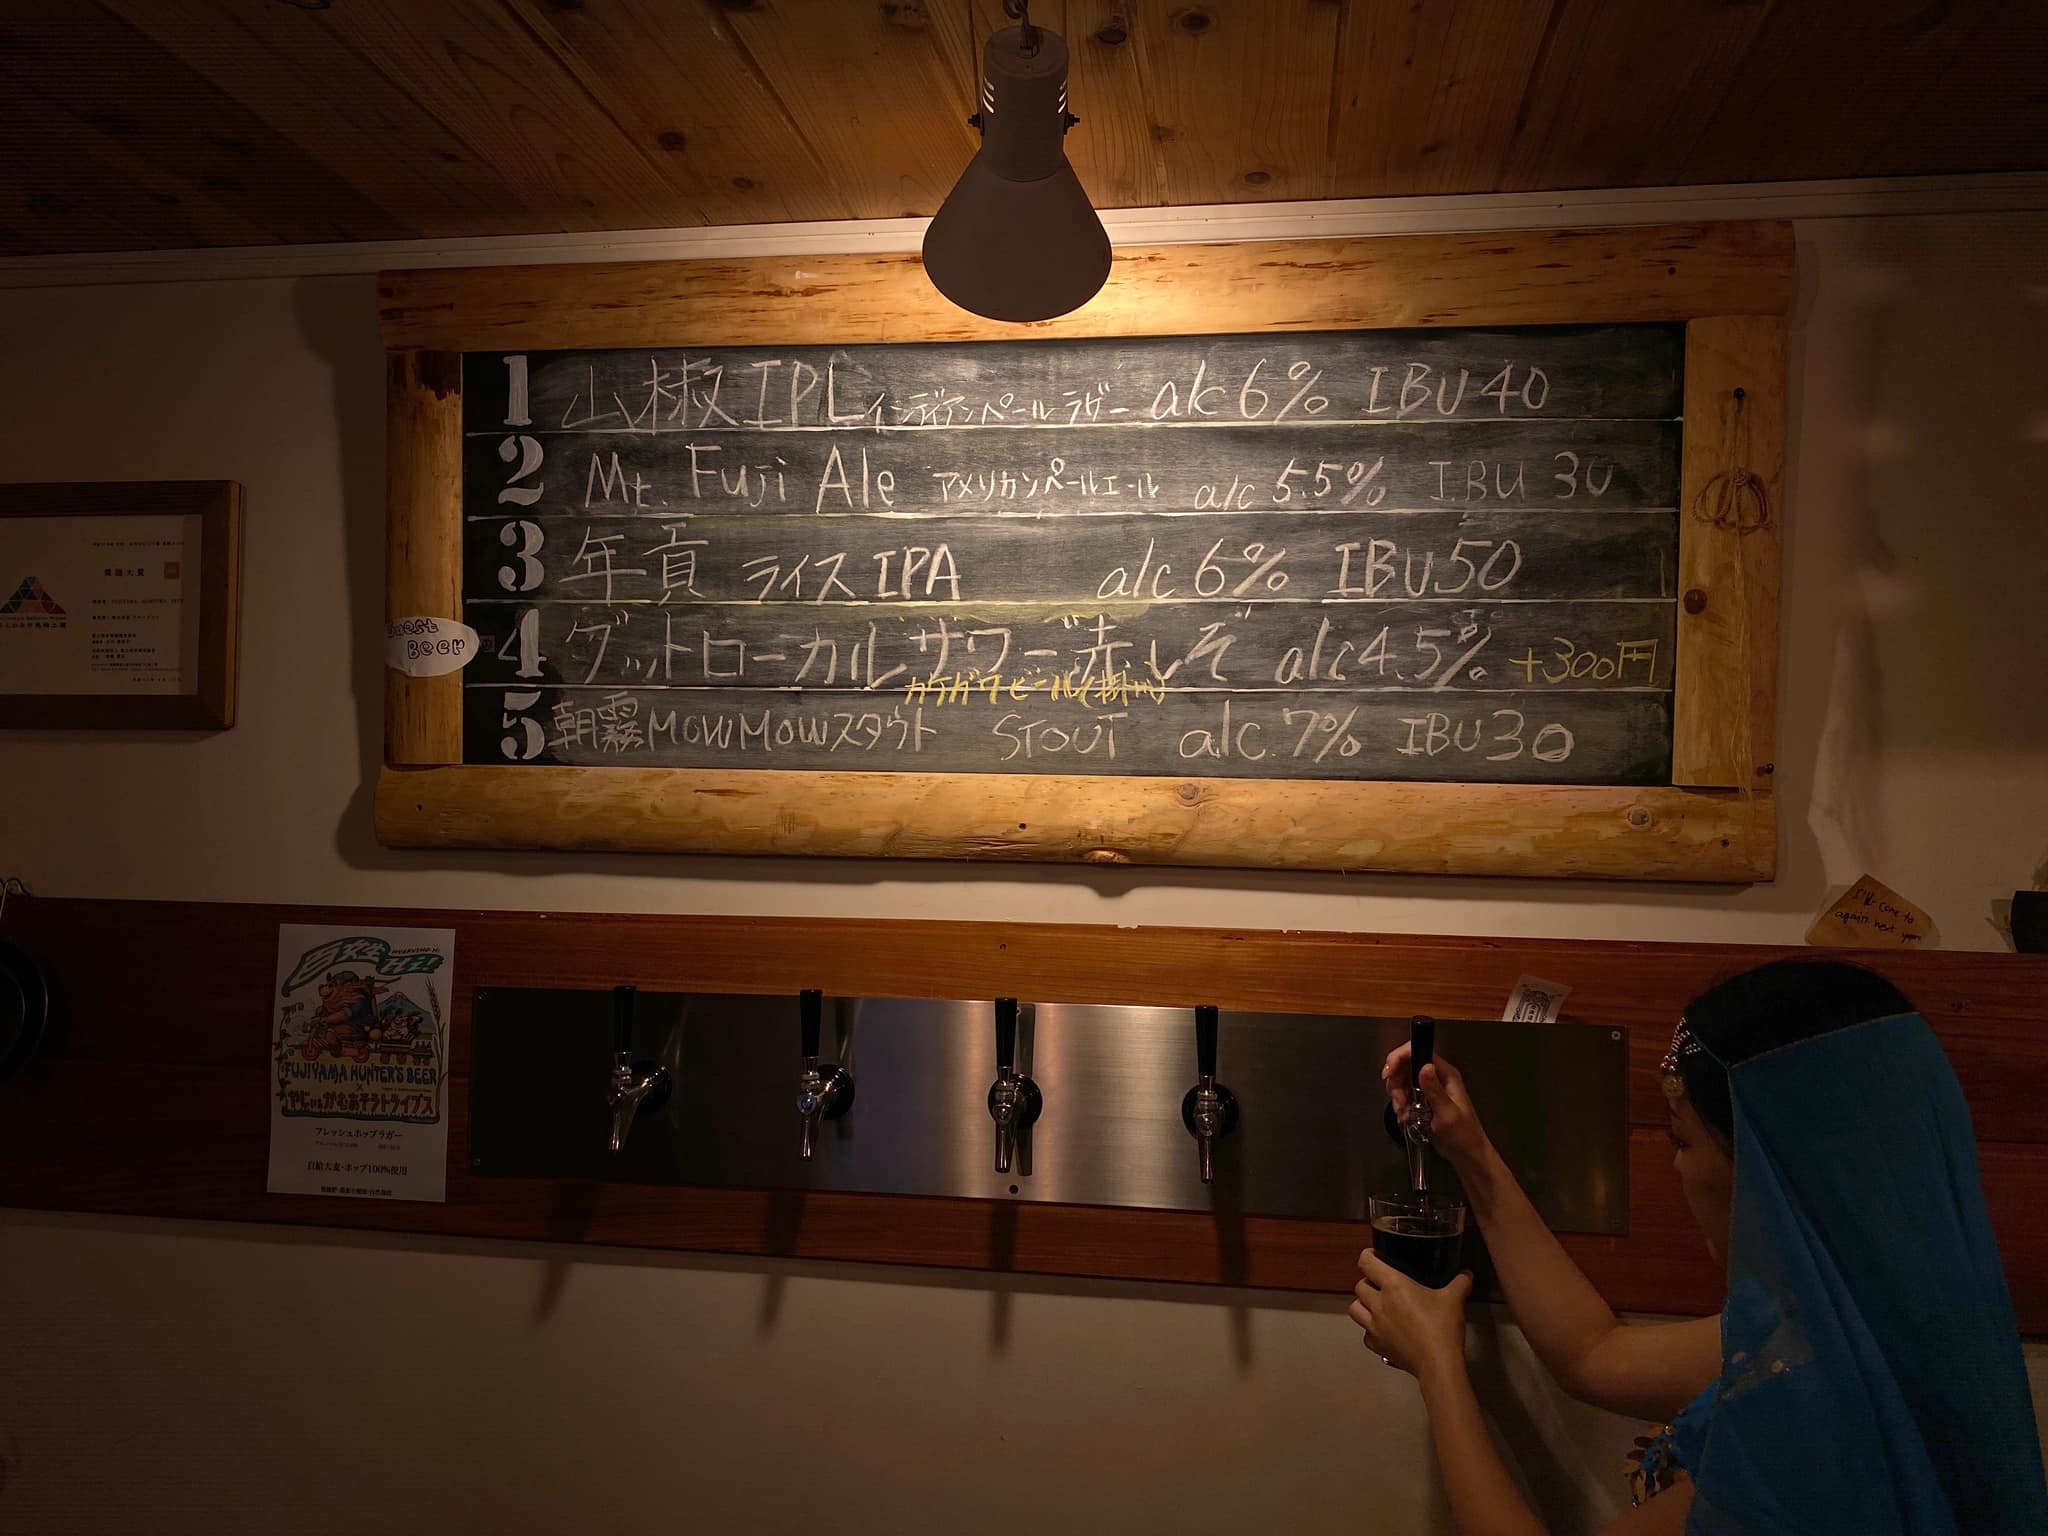 1 山椒 IPL インディアンペールラガー alc 6% IBU 40
2 Mt. Fuji Ale アメリカンペールエール alc 5.5% IBU 30
3 年貢 ライス IPA alc 6% IBU 50
Guest Beer
4 グットローカルサワー 赤しそ alc 4.5% +300円
カケガワビール(掛川)
5 朝霧 MOWMOW スタウト STOUT alc. 7% IBU 30
環境大賞
I'll come to
again next year
FUJIYAMA HUNTER'S BEER
×
フレッシュホップラガー
自給大麦・ホップ100%使用